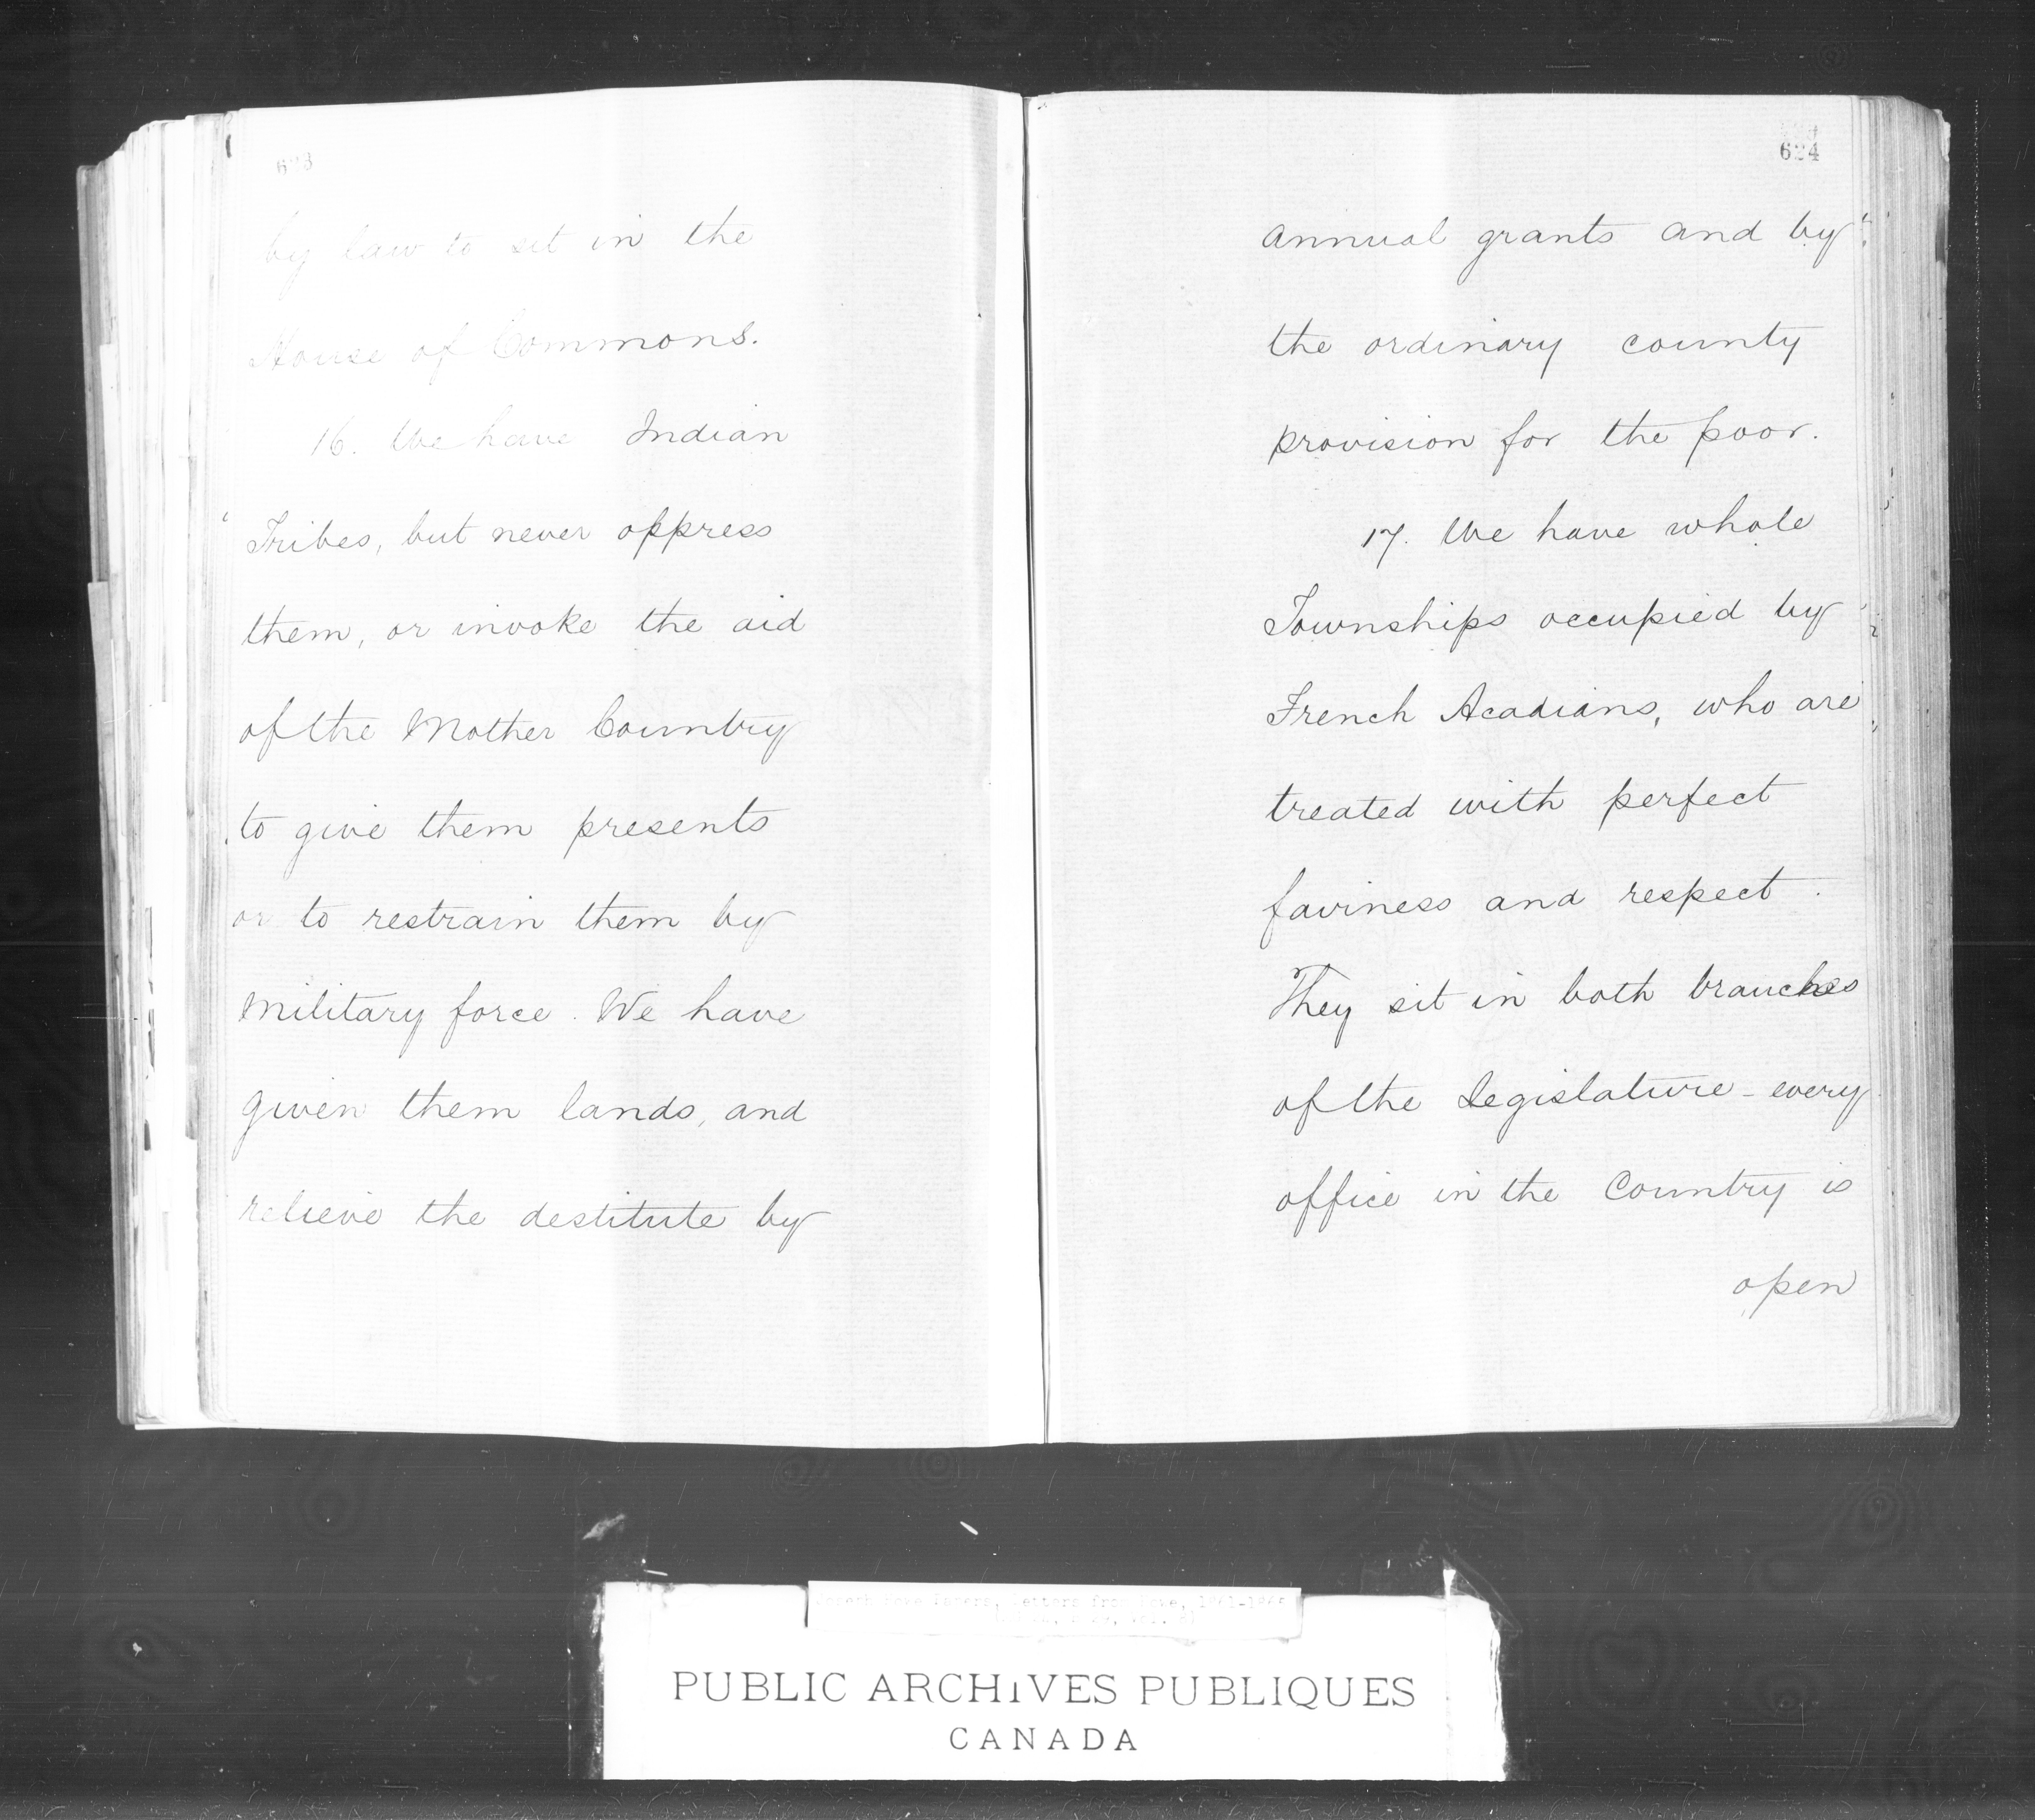 623
by law to sit in the
House of Commons.
16. We have Indian
Tribes, but never oppress
them, or invoke the aid
of the Mother Country
to give them presents
or to restrain them by
military force. We have
given them lands, and
relieve the destitute by
624
annual grants and by
the ordinary county
provision for the poor.
17. We have whole
Townships occupied by
French Acadians, who are
treated with perfect
fairness and respect.
They sit in both branches
of the Legislature - every
office in the Country is
open
Joseph Howe Papers, Letters from Howe,
PUBLIC ARCHIVES PUBLIQUES
CANADA